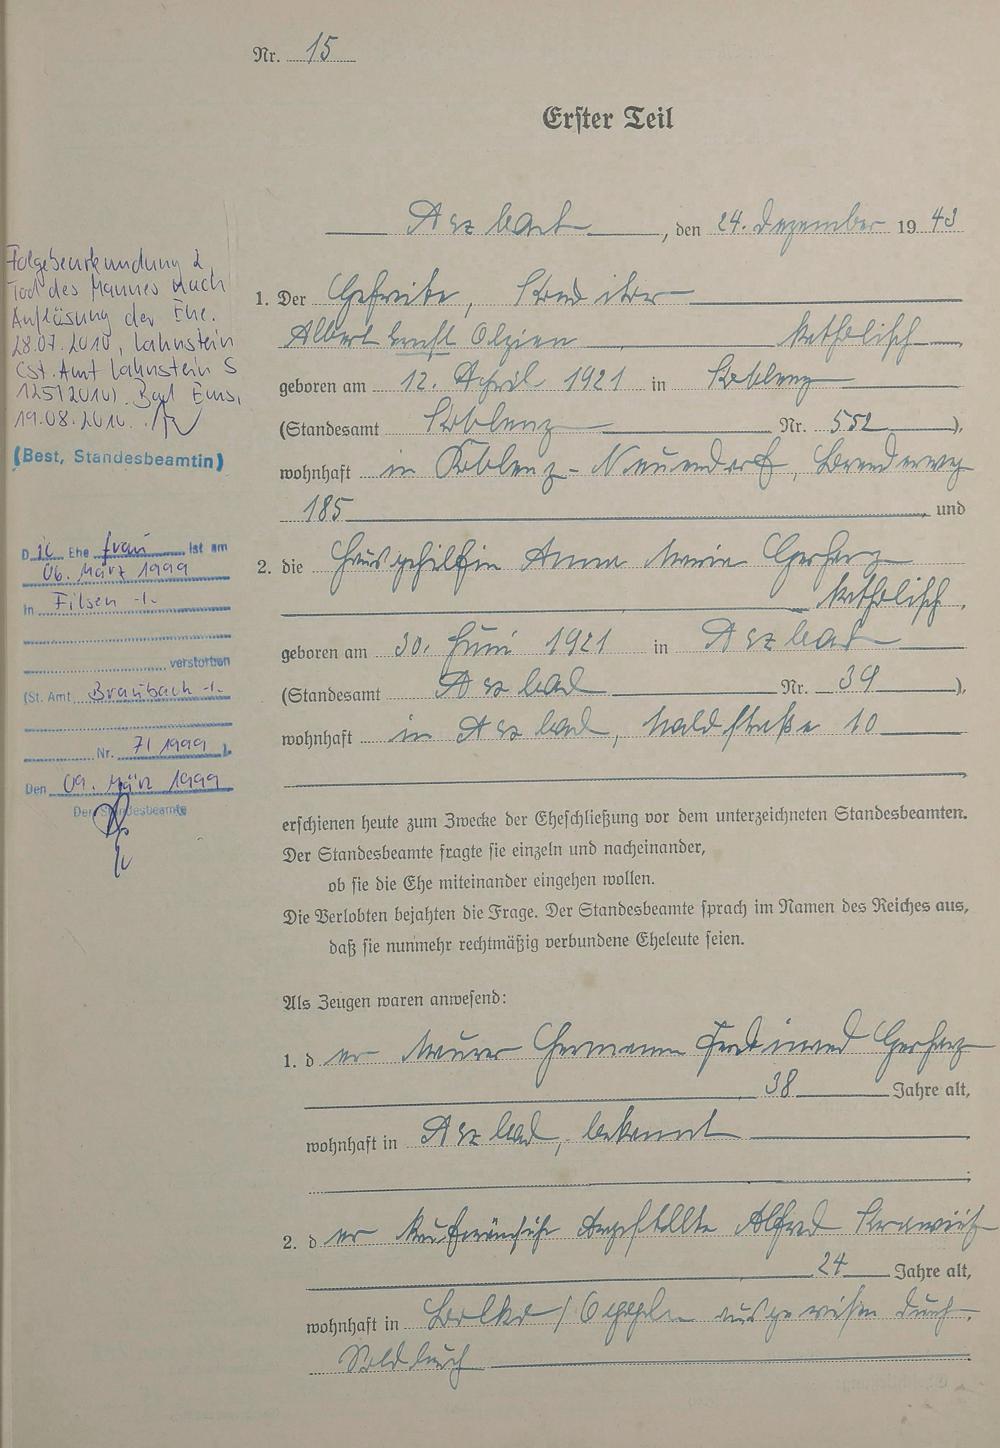 Nr. 15
Erster Teil
Arzbach, den 24. Dezember 1943
1. Der Gefreite,
Albert Ernst Olzien katholisch
geboren am 12. April 1921 in Koblenz
(Standesamt Koblenz Nr. 552),
wohnhaft in Koblenz-Neuendorf,
185 und
2. die Hausgehilfin Anna Maria Gerharz
katholisch,
geboren am 30. Juni 1921 in Arzbach
(Standesamt Arzbach Nr. 39),
wohnhaft in Arzbach, Waldstraße 10
erschienen heute zum Zwecke der Eheschließung vor dem unterzeichneten Standesbeamten.
Der Standesbeamte fragte sie einzeln und nacheinander,
ob sie die Ehe miteinander eingehen wollen.
Die Verlobten bejahten die Frage. Der Standesbeamte sprach im Namen des Reiches aus,
daß sie nunmehr rechtmäßig verbundene Eheleute seien.
Als Zeugen waren anwesend:
1. der Maurer Hermann Ferdinand Gerharz
38 Jahre alt,
wohnhaft in Arzbach, bekannt
;
2. der Kaufmännische Angestellte Alfred
24 Jahre alt,
wohnhaft in ausgewiesen durch
Soldbuch
Folgebeurkundung 2
Tod des Mannes nach
Auflösung der Ehe.
28.07.2010, Lahnstein
(St. Amt Lahnstein S
125/2010). Bad Ems,
19.08.2010.
(Best, Standesbeamtin)
Die Ehefrau ist am
06. März 1999
in Filsen -/-
verstorben
(St. Amt Braubach -/-
Nr. 7/1999).
Den 09. März 1999
Der Standesbeamte